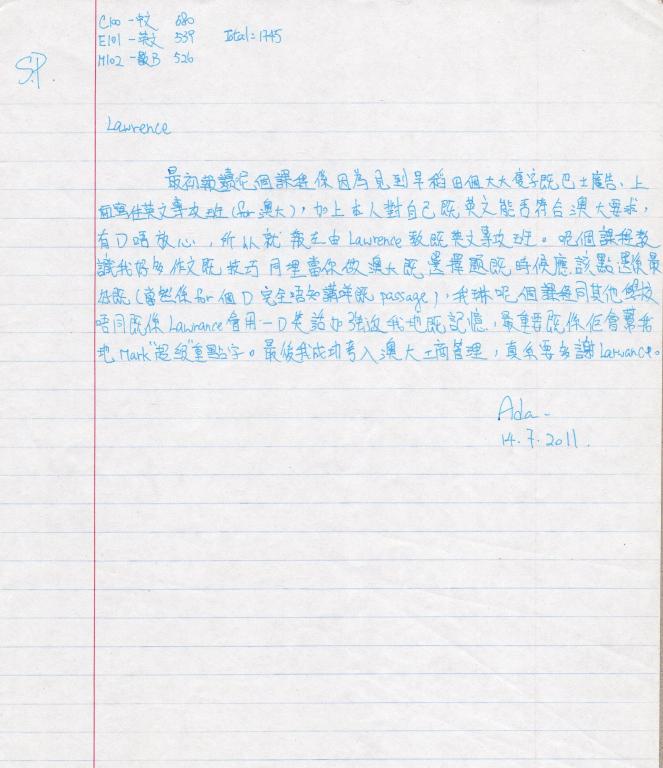 C100 - 中文 680
E101 - 英文 539 Total = 1745
M102 - 數B 526
S.P.
Lawrence
最初報讀呢個課程係因為見到早稻田個大大隻字既巴士廣告、上
面寫住英文專攻班 (for 澳大), 加上本人對自己既英文能否符合澳大要求,
有D唔放心, 所以就報左由 Lawrence 教既英文專攻班。呢個課程教
識我好多作文既技巧同埋當你做澳大既選擇題既時候應該點選係最
好既 (當然係 for 個D完全唔知講咩既 passage), 我諗呢個課程同其他學校
唔同既係 Lawrance 會用一D笑話加強返我地既記憶, 最重要既係佢會幫我
地 Mark "超級" 重點字。最後我成功考入澳大工商管理, 真系要多謝 Larwance。
Ada -
14.7.2011.